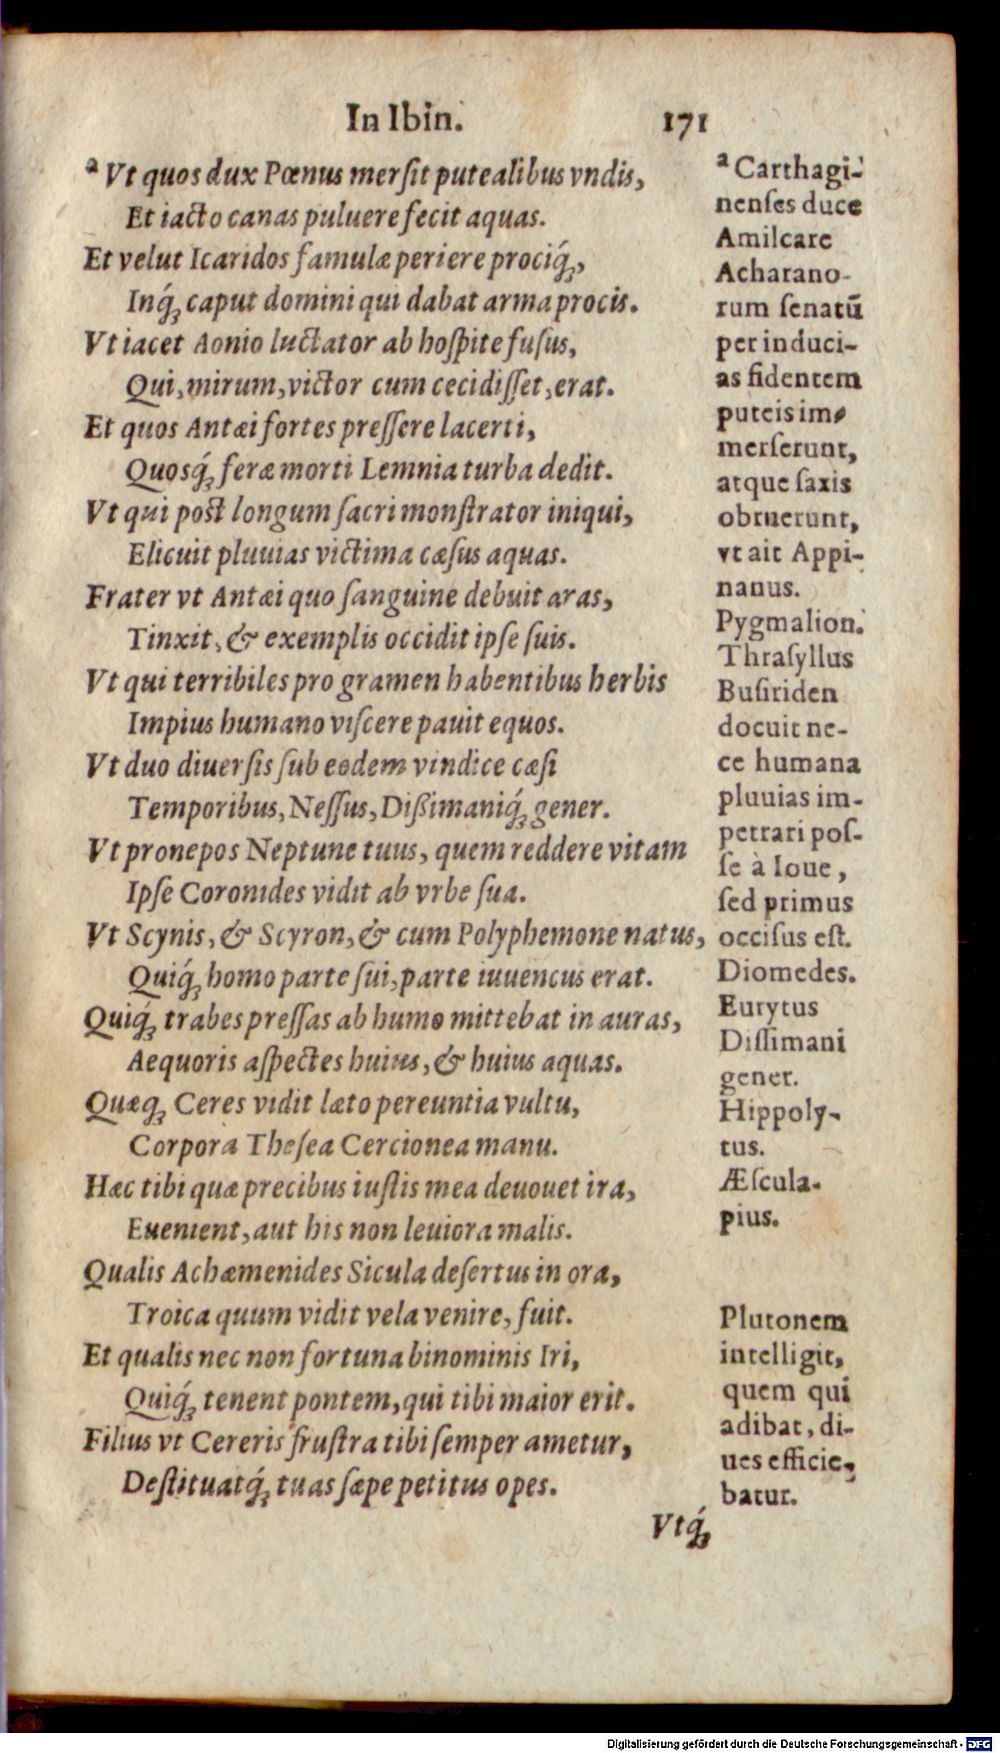 In Ibin. 171
ᵃ Vt quos dux Pœnus merſit putealibus vndis,
Et iacto canas puluere fecit aquas.
Et velut Icaridos famulæ periere prociq́ꝫ,
Inq́ꝫ caput domini qui dabat arma procis.
Vt iacet Aonio luctator ab hoſpite fuſus,
Qui, mirum, victor cum cecidiſſet, erat.
Et quos Antæi fortes preſſere lacerti,
Quosq́ꝫ feræ morti Lemnia turba dedit.
Vt qui poſt longum ſacri monſtrator iniqui,
Elicuit pluuias victima cæſus aquas.
Frater vt Antæi quo ſanguine debuit aras,
Tinxit, & exemplis occidit ipſe ſuis.
Vt qui terribiles pro gramen habentibus herbis
Impius humano viſcere pauit equos.
Vt duo diuerſis ſub eodem vindice cæſi
Temporibus, Neſſus, Dißimaniq́ꝫ gener.
Vt pronepos Neptune tuus, quem reddere vitam
Ipſe Coronides vidit ab vrbe ſua.
Vt Scynis, & Scyron, & cum Polyphemone natus,
Quiq́ꝫ homo parte ſui, parte iuuencus erat.
Quiq́ꝫ trabes preſſas ab humo mittebat in auras,
Aequoris aſpectes huius, & huius aquas.
Quæqꝫ Ceres vidit læto pereuntia vultu,
Corpora Theſea Cercionea manu.
Hæc tibi quæ precibus iuſtis mea deuouet ira,
Euenient, aut his non leuiora malis.
Qualis Achæmenides Sicula deſertus in ora,
Troica quum vidit vela venire, fuit.
Et qualis nec non fortuna binominis Iri,
Quiq́ꝫ tenent pontem, qui tibi maior erit.
Filius vt Cereris fruſtra tibi ſemper ametur,
Deſtituatq́ꝫ tuas ſæpe petitus opes.
Vtq́ꝫ
ᵃ Carthagi-
nenſes duce
Amilcare
Acharano-
rum ſenatū
per induci-
as fidentem
puteis im-
merſerunt,
atque ſaxis
obruerunt,
vt ait Appi-
nanus.
Pygmalion.
Thraſyllus
Buſiriden
docuit ne-
ce humana
pluuias im-
petrari poſ-
ſe à Ioue,
ſed primus
occiſus eſt.
Diomedes.
Eurytus
Diſſimani
gener.
Hippoly-
tus.
Æſcula-
pius.
Plutonem
intelligit,
quem qui
adibat, di-
ues efficie-
batur.
Digitalisierung gefördert durch die Deutsche Forschungsgemeinschaft - DFG